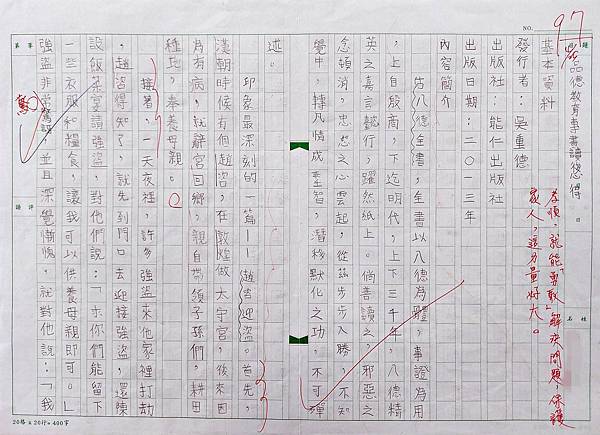 97
NO.
品德教育專書讀後心得
基本資料
發行者：吳重德
出版社：能仁出版社
出版日期：二〇一三年
內容簡介
古八德全書，全書以八德為體，事證為用
，上自殷商，下迄明代，上下三千年，八德精
英之嘉言懿行，躍然紙上。倘善讀之，邪惡之
念頓消，忠恕之心雲起，從茲步步入勝，不知
覺中轉凡情成聖智，潛移默化之功，不可殫
述。
印象最深刻的一篇——趙咨迎盜。首先，
漢朝時候有個趙咨，在敦煌做太守官，後來因
為有病，就辭官回鄉，親自帶領子孫們，耕田
種地，奉養母親。
接著，一天夜裡，許多強盜來他家裡打劫
，趙咨得知了，就先到門口去迎接強盜，還陳
設飯菜宴請強盜，對他們說：「求你們能留下
一些衣服和糧食，讓我可以供養母親即可。」
強盜非常驚訝，並且深覺慚愧，就對他說：「我
驚
孝順，就能「勇敢」解決問題，保護
家人，這力量好大。
20格×20行=400字